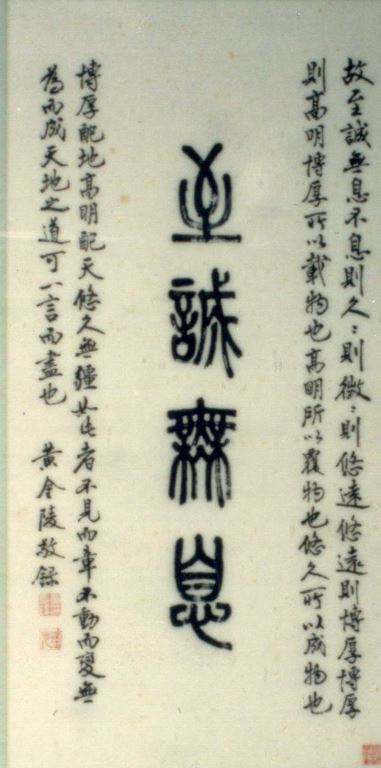 故至誠無息不息則久〻則徵〻則悠遠悠遠則博厚博厚
則高明博厚所以載物也高明所以覆物也悠久所以成物也
至誠無息
博厚配地高明配天悠久無疆如此者不見而章不動而變無
為而成天地之道可一言而盡也 黃金陵敬錄